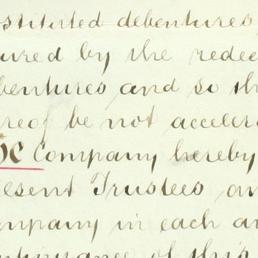 stituted debentures
ured by the redee
bentures and so th
ereof be not acceler
he Company hereby
resent Trustees an
ompany in each an
ntinuance of this